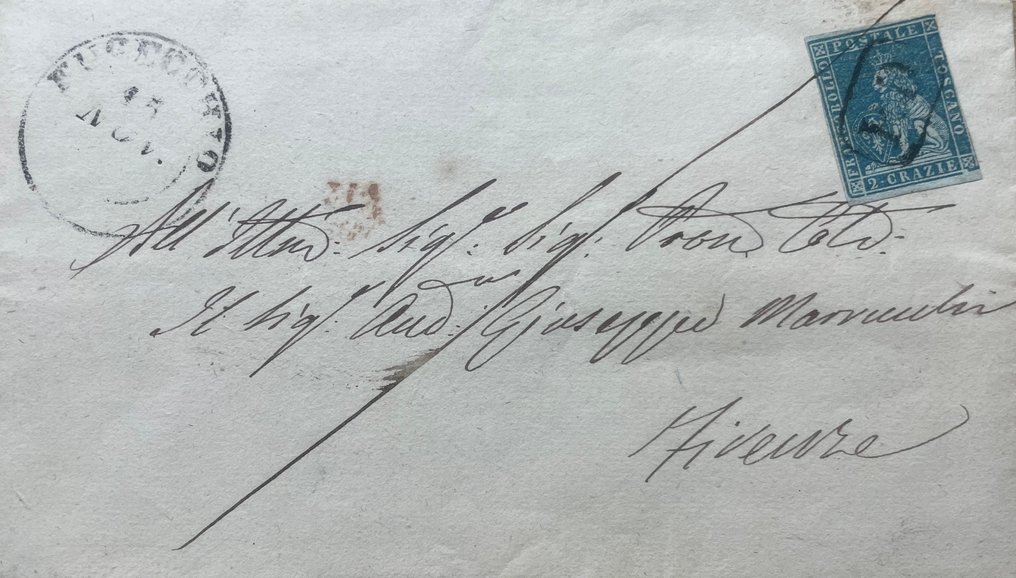 FUCECCHIO
15
NOV.
FRANCOBOLLO POSTALE TOSCANO
2 · CRAZIE
PD
All' Illmo. Sigr. Sigr. Pron Col.
Il Sigr. Aud. Giuseppe
Firenze